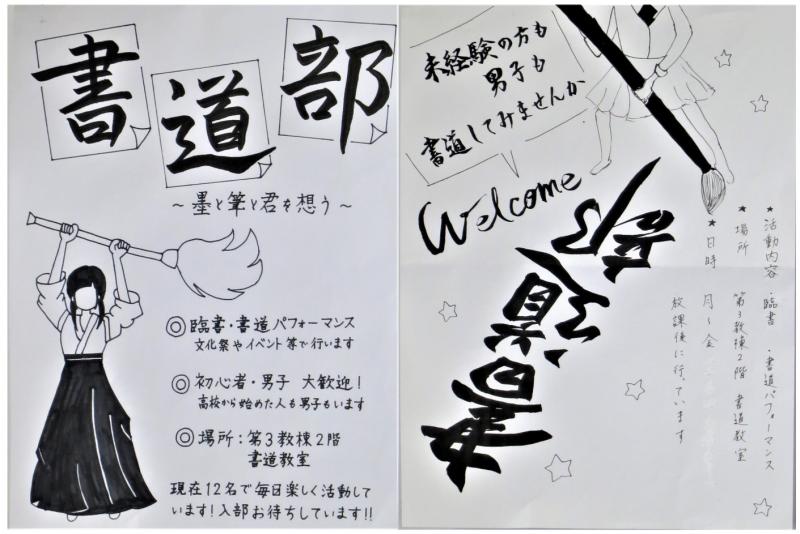 書道部
～墨と筆と君を想う～
◎臨書・書道パフォーマンス
文化祭やイベント等で行います
◎初心者・男子 大歓迎！
高校から始めた人も男子もいます
◎場所：第3教棟2階
書道教室
現在12名で毎日楽しく活動して
います！入部お待ちしています!!
未経験の方も
男子も
書道してみませんか
Welcome
書道部
★活動内容 ・臨書 ・書道パフォーマンス
★場所 第3教棟2階 書道教室
★日時 月～金
放課後に行っています